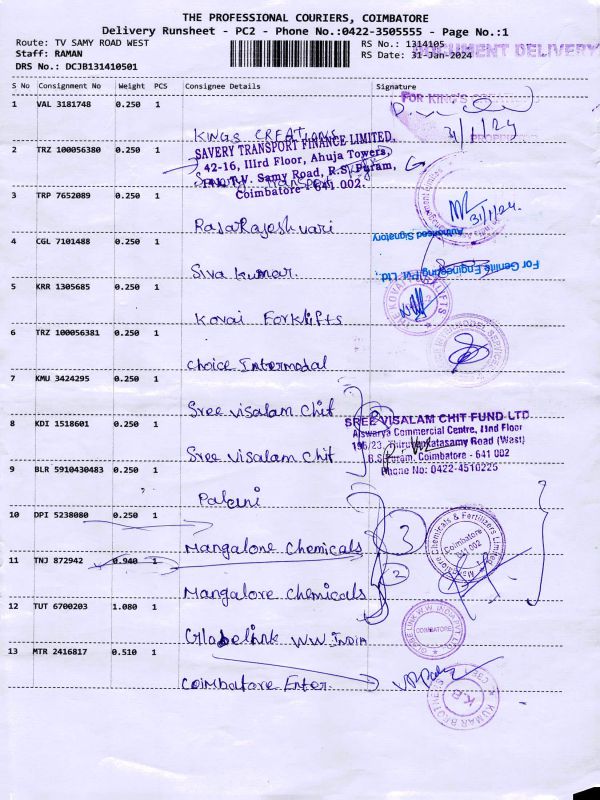 THE PROFESSIONAL COURIERS, COIMBATORE
Delivery Runsheet - PC2 - Phone No.:0422-3505555 - Page No.:1
Route: TV SAMY ROAD WEST
Staff: RAMAN
DRS No.: DCJB131410501
RS No.: 1314105
RS Date: 31-Jan-2024
DOCUMENT DELIVERY
S No Consignment No Weight PCS Consignee Details Signature
1 VAL 3181748 0.250 1
FOR KING'S
31/1/24
KINGS CREATIONS
2 TRZ 100056380 0.250 1
SAVERY TRANSPORT FINANCE LIMITED.
42-16, IIIrd Floor, Ahuja Towers,
T.V. Samy Road, R.S. Puram,
Coimbatore - 641 002.
3 TRP 7652089 0.250 1
31/1/24.
RajaRajeshwari
4 CGL 7101488 0.250 1
Authorised Signatory
For Genite Engineering Pvt. Ltd.,
Siva kumar.
5 KRR 1305685 0.250 1
Kovai Forklifts
6 TRZ 100056381 0.250 1
Choice Intermodal
7 KMU 3424295 0.250 1
Sree Visalam Chit
8 KDI 1518601 0.250 1
SREE VISALAM CHIT FUND LTD
Aiswarya Commercial Centre, IInd Floor
Venkatasamy Road (West)
R.S. Puram, Coimbatore - 641 002
Phone No: 0422-4510225
Sree Visalam Chit
9 BLR 5910430483 0.250 1
10 DPI 5238080 0.250 1
Mangalore Chemicals
3
Mangalore Chemicals & Fertilizers Limited
Coimbatore
641 002
11 TNJ 872942 0.940 1
2
Mangalore Chemicals
12 TUT 6700203 1.080 1
Globelink WW INDIA
COIMBATORE
13 MTR 2416817 0.510 1
Coimbatore Enter.
K.B.